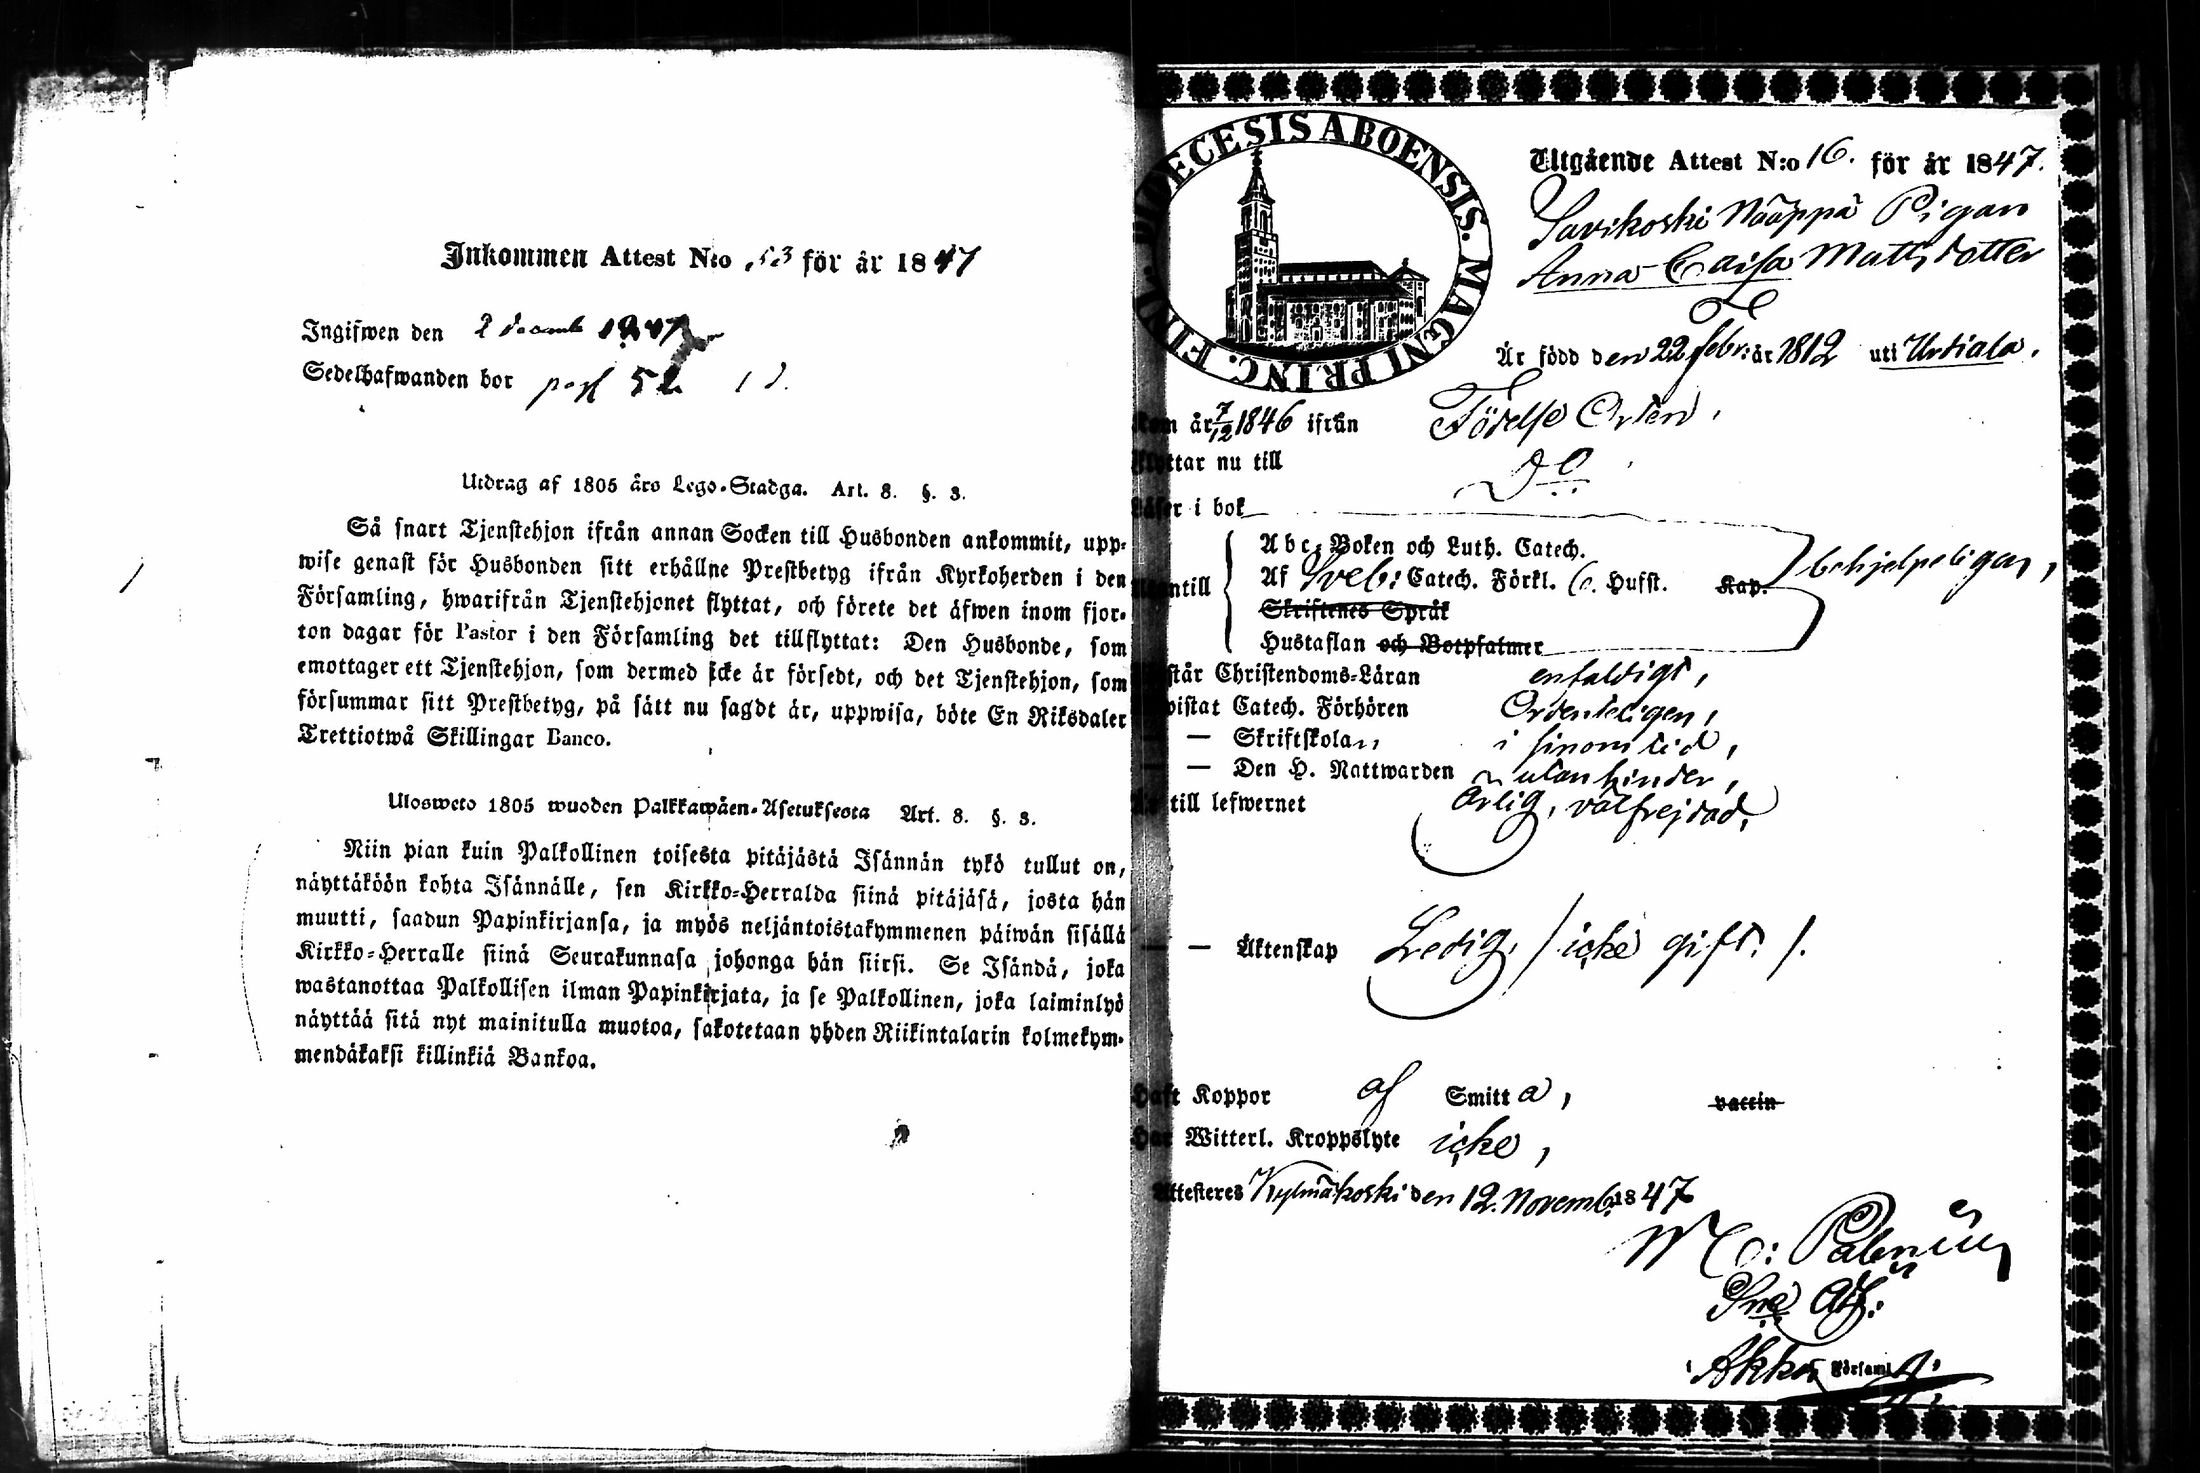 Inkommen Attest N:o 53 för år 1847
Ingifwen den 2 decemb 1847
Sedelhafwanden bor pag 52
Utdrag af 1805 års Lego-Stadga. Art. 8. §. 3.
Så snart Tjenstehjon ifrån annan Socken till Husbonden ankommit, upp-
wise genast för Husbonden sitt erhållne Prestbetyg ifrån Kyrkoherden i den
Församling, hwarifrån Tjenstehjonet flyttat, och förete det äfwen inom fjor-
ton dagar för Pastor i den Församling det tillflyttat: Den Husbonde, som
emottager ett Tjenstehjon, som dermed icke är försedt, och det Tjenstehjon, som
försummar sitt Prestbetyg, på sätt nu sagdt är, uppwisa, böte En Riksdaler
Trettiotwå Skillingar Banco.
Ulosweto 1805 wuoden Palkkawäen-Asetuksesta Art. 8. §. 3.
Niin pian kuin Palkollinen toisesta pitäjästä Isännän tykö tullut on,
näyttäköön kohta Isännälle, sen Kirkko-Herralda siinä pitäjäsä, josta hän
muutti, saadun Papinkirjansa, ja myös neljäntoistakymmenen päiwän sisällä
Kirkko-Herralle siinä Seurakunnasa johonga hän siirsi. Se Isändä, joka
wastanottaa Palkollisen ilman Papinkirjata, ja se Palkollinen, joka laiminlyö
näyttää sitä nyt mainitulla muotoa, sakotetaan yhden Riikintalarin kolmekym-
mendäkaksi killinkiä Bankoa.
DIOECESIS ABOENSIS. MAGNI PRINC. FINL.
Utgående Attest N:o 16. för år 1847.
Savikoski Nääppä Pigan
Anna Caisa Mattsdotter
Är född den 22 Febr: år 1812 uti Urdiala.
Kom år 7/12 1846 ifrån Födelse Orten,
Flyttar nu till do
Läser i bok
Abc-Boken och Luth. Catech.
Utantill Af Sveb: Catech. Förkl. C. Hufst. Kap. behjelpeligen,
Skriftenes Språk
Hustaflan och Botpsalmer
Förstår Christendoms-Läran enfaldigt,
Bevistat Catech. Förhören Ordenteligen,
— — Skriftskolan i sinom tid,
— — Den H. Nattwarden utan hinder,
Är till lefwernet ärlig, välfrejdad,
— — Äktenskap Ledig, / icke gift. /.
Haft Koppor af Smitta, vaccin
Har Witterl. Kroppslyte icke,
Attesteres Kylmäkoski den 12. Novemb: 1847
i Akka Församl